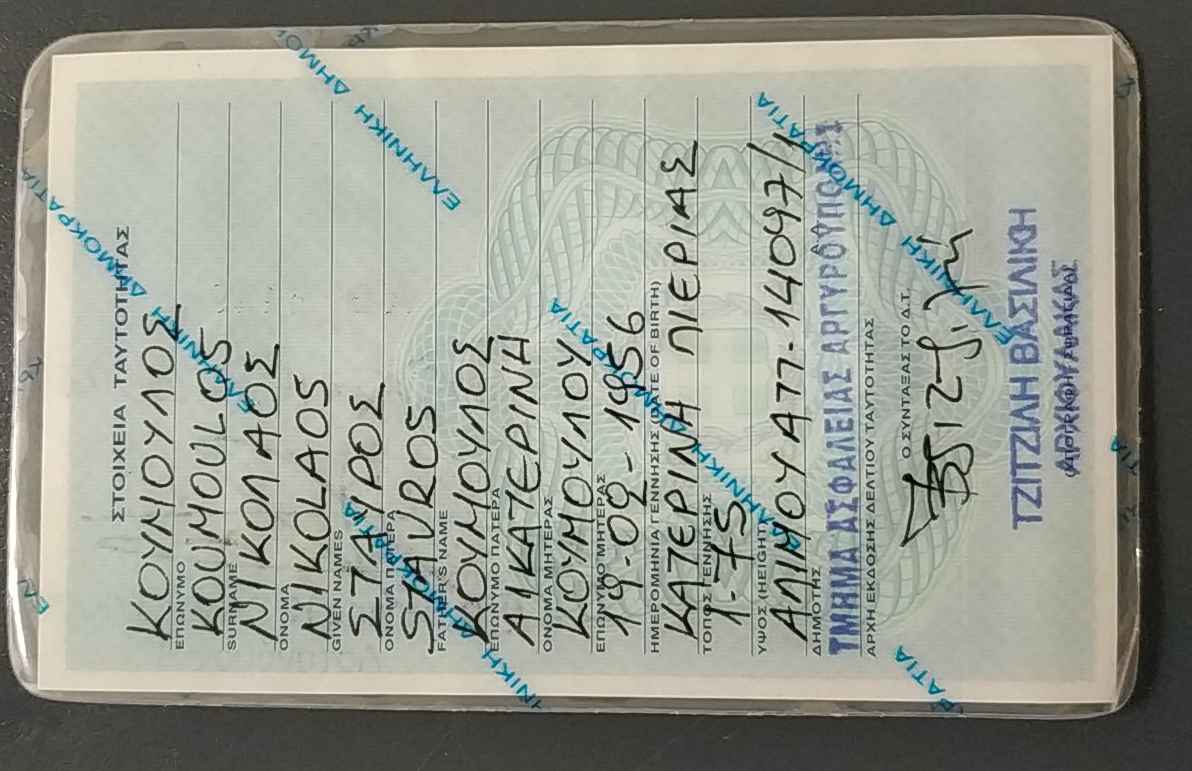 ΣΤΟΙΧΕΙΑ ΤΑΥΤΟΤΗΤΑΣ
ΚΟΥΜΟΥΛΟΣ
ΕΠΩΝΥΜΟ
KOUMOULOS
SURNAME
ΝΙΚΟΛΑΟΣ
ΟΝΟΜΑ
NIKOLAOS
GIVEN NAMES
ΣΤΑΥΡΟΣ
ΟΝΟΜΑ ΠΑΤΕΡΑ
STAVROS
FATHER'S NAME
ΚΟΥΜΟΥΛΟΣ
ΕΠΩΝΥΜΟ ΠΑΤΕΡΑ
ΑΙΚΑΤΕΡΙΝΗ
ΟΝΟΜΑ ΜΗΤΕΡΑΣ
ΚΟΥΜΟΥΛΟΥ
ΕΠΩΝΥΜΟ ΜΗΤΕΡΑΣ
19-02-1956
ΗΜΕΡΟΜΗΝΙΑ ΓΕΝΝΗΣΗΣ (DATE OF BIRTH)
ΚΑΤΕΡΙΝΗ ΠΙΕΡΙΑΣ
ΤΟΠΟΣ ΓΕΝΝΗΣΗΣ
1-75
ΥΨΟΣ (HEIGHT)
ΑΛΙΜΟΥ ΑΤΤ-14097/1
ΔΗΜΟΤΗΣ
ΤΜΗΜΑ ΑΣΦΑΛΕΙΑΣ ΑΡΓΥΡΟΥΠΟΛΗΣ
ΑΡΧΗ ΕΚΔΟΣΗΣ ΔΕΛΤΙΟΥ ΤΑΥΤΟΤΗΤΑΣ
Ο ΣΥΝΤΑΞΑΣ ΤΟ Δ.Τ.
ΤΖΙΤΖΙΛΗ ΒΑΣΙΛΙΚΗ
ΕΛΛΗΝΙΚΗ ΔΗΜΟΚΡΑΤΙΑ